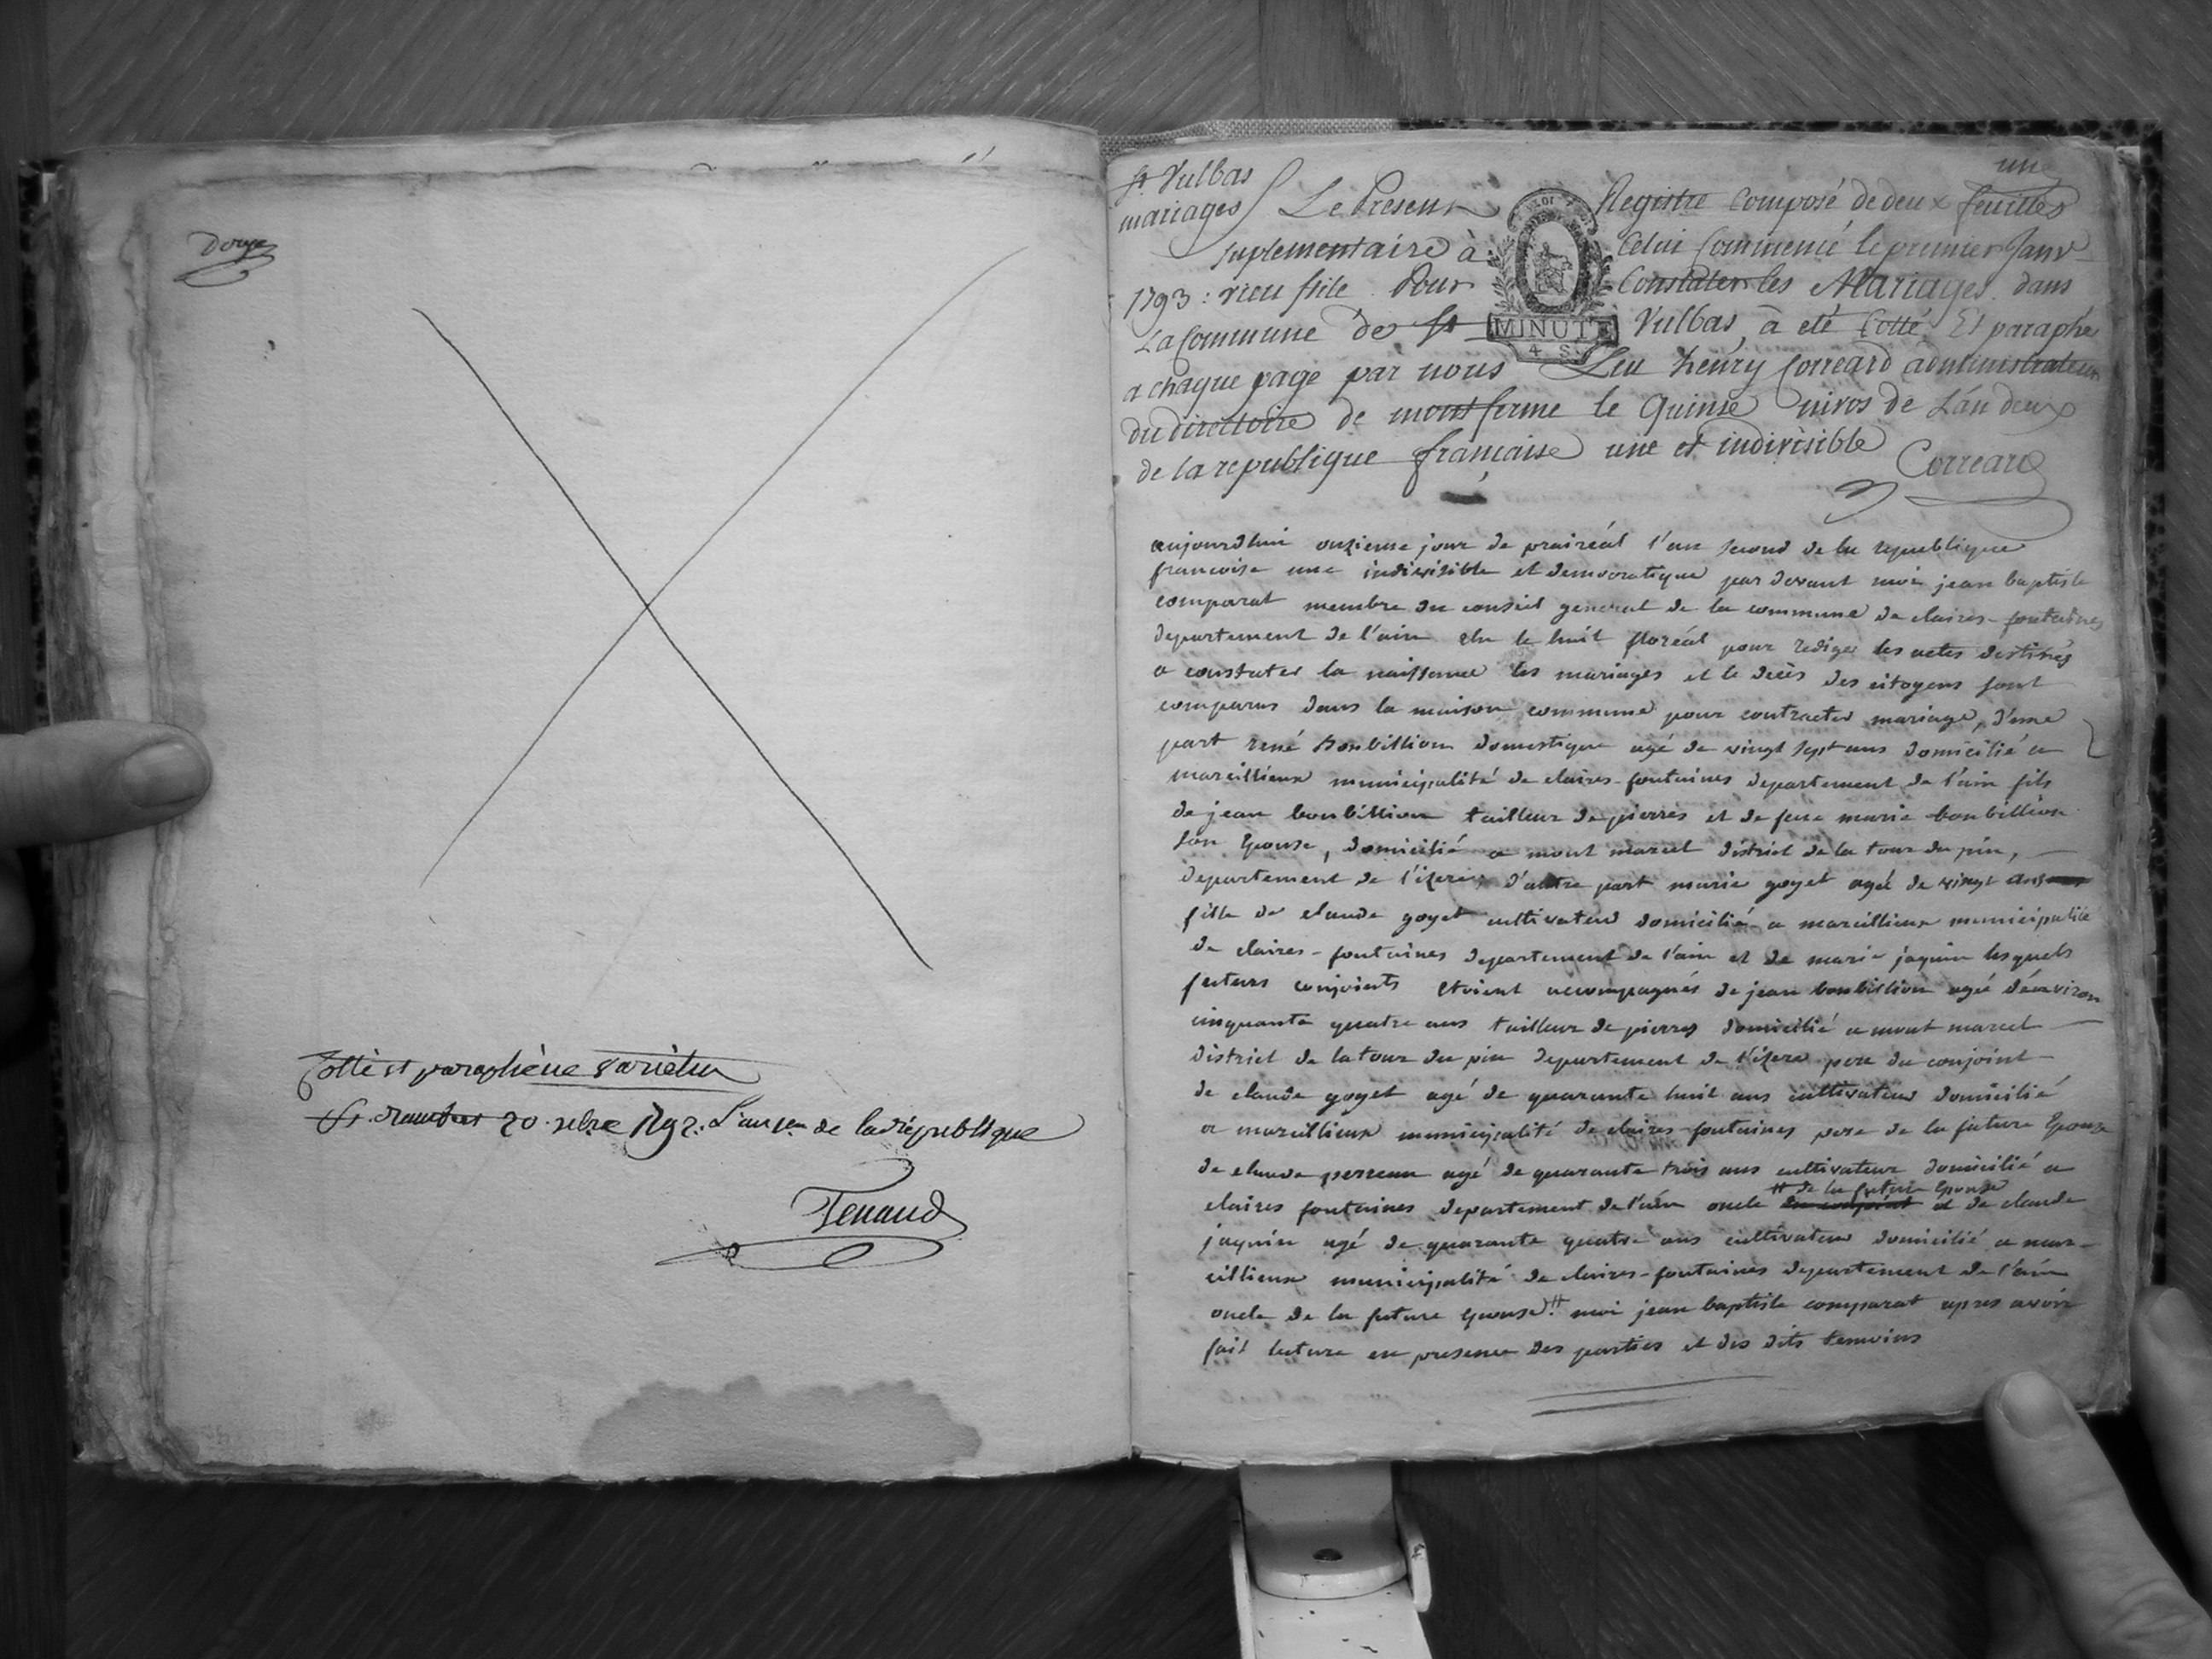 Douze
Cotté et paraphé ne varietur
20 xbre 1792. L'an 1er de la république
Tenand
une
St Vulbas
mariages
Le Present Registre Composé de deux feuilles
suplementaire à Celui Commencé le premier Janv
1793: vieu stile pour Constater les Mariages dans
La Commune de St Vulbas, à eté Cotté Et paraphé
MINUTE
4 S
a chaque page par nous Leu henry Correard administrateur
du directoire de montferme le Quinse nivos de L'an deux
de la republique française une et indivisible
Correard
aujourdhui onzieme jour de prairéal l'an second de la republique
francoise une indivisible et democratique par devant moi jean baptiste
comparat membre du conseil general de la commune de claires-fontaines
departement de l'ain elu le huit floréal pour rediger les actes destinés
a constater la naissance les mariages et le décès des citoyens sont
comparus dans la maison commune pour contracter mariage, d'une
part rené bonbillion domestique agé de vingt sept ans domicilié a
marcillieux municipalité de claires-fontaines departement de l'ain fils
de jean bonbillion tailleur de pierres et de feue marie bonbillion
son Epouse, domicilié a mont marcel district de la tour du pin,
departement de l'izere, d'autre part marie goyet agée de vingt ans
fille de claude goyet cultivateur domicilié a marcillieux municipalité
de claires-fontaines departement de l'ain et de marie jaquin lesquels
futurs conjoints etoient accompagnés de jean bonbillion agé d'environ
cinquante quatre ans tailleur de pierres domicilié a mont marcel
district de la tour du pin departement de l'izere pere du conjoint
de claude goyet agé de quarante huit ans cultivateur domicilié
a marcillieux municipalité de claires-fontaines pere de la future Epouse
de claude perreau agé de quarante trois ans cultivateur domicilié a
# de la future Epouse
claires fontaines departement de l'ain oncle du conjoint et de claude
jaquin agé de quarante quatre ans cultivateur domicilié a mar-
cillieux municipalité de claires-fontaines departement de l'ain
oncle de la future Epouse # moi jean baptiste comparat apres avoir
fait lecture en presence des parties et des dits temoins